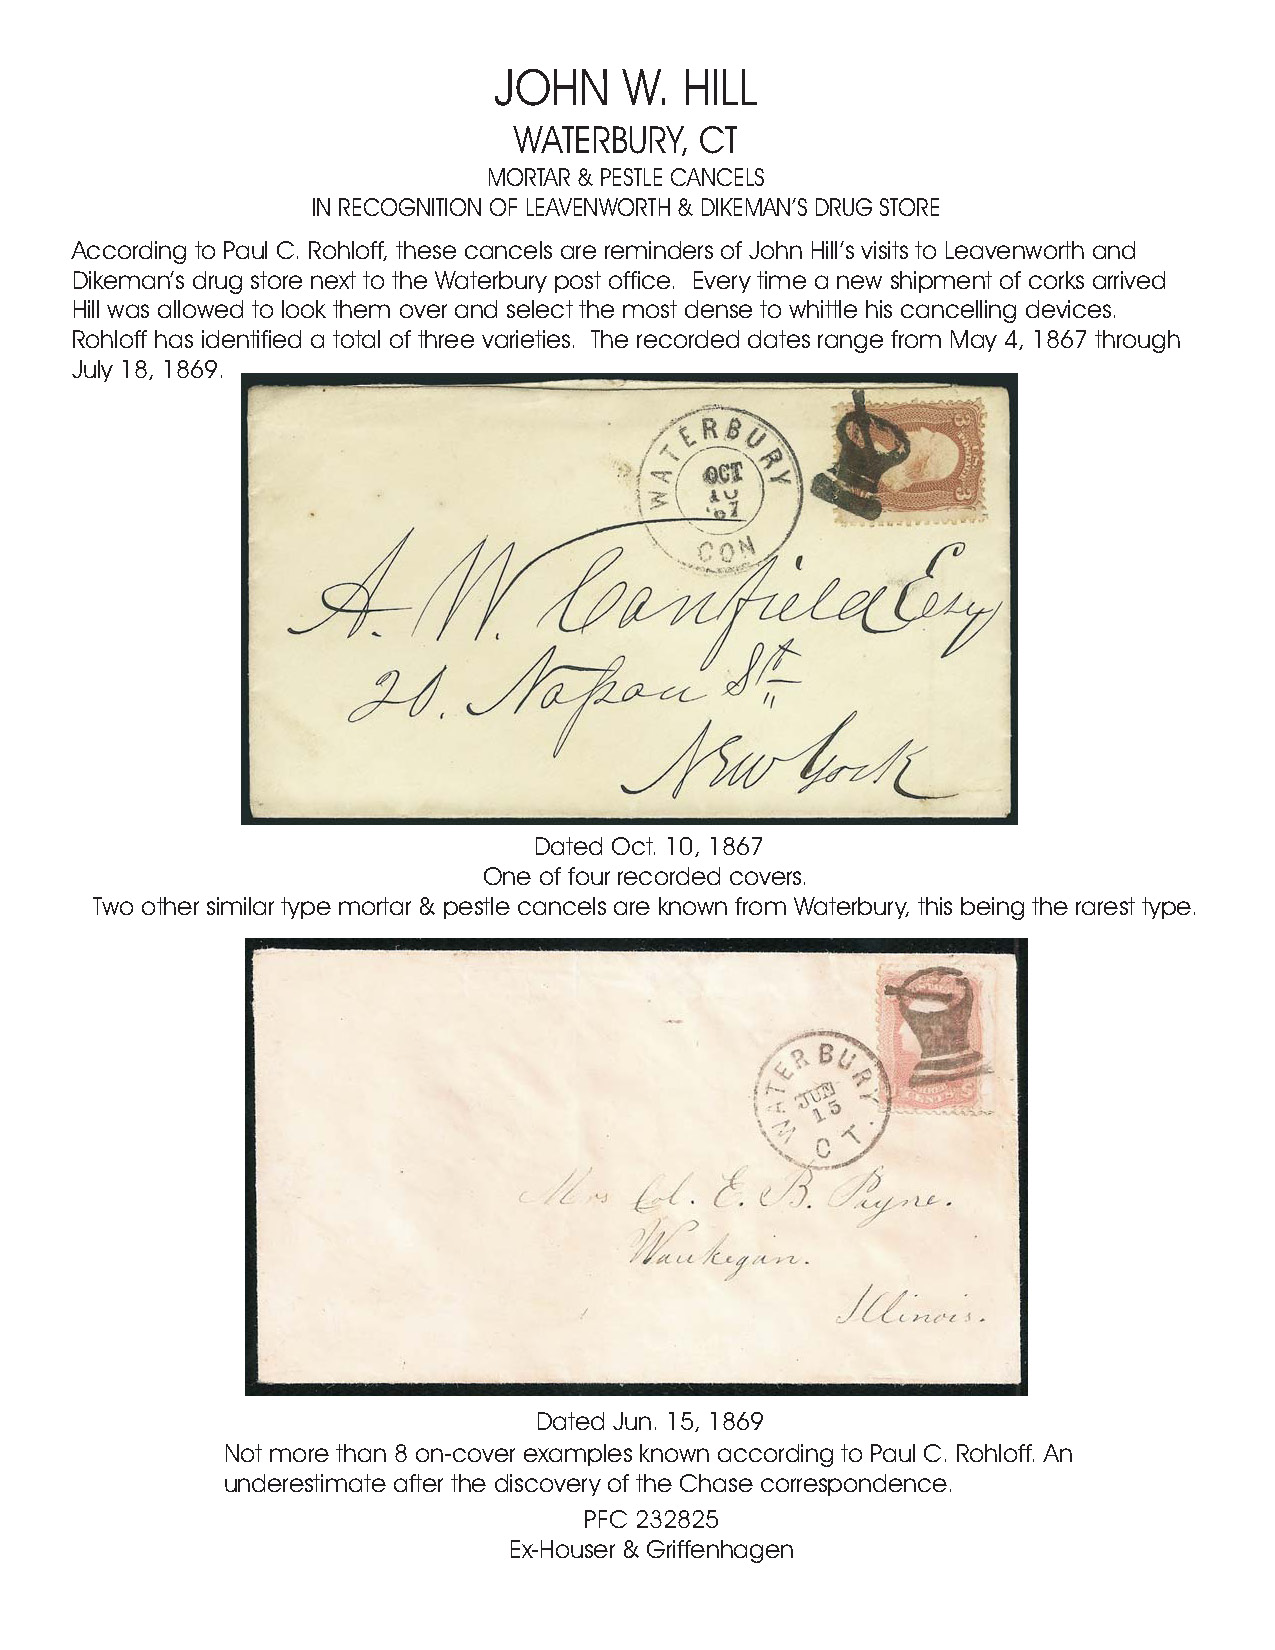 JOHN W. HILL
WATERBURY, CT
MORTAR & PESTLE CANCELS
IN RECOGNITION OF LEAVENWORTH & DIKEMAN'S DRUG STORE
According to Paul C. Rohloff, these cancels are reminders of John Hill's visits to Leavenworth and
Dikeman's drug store next to the Waterbury post office. Every time a new shipment of corks arrived
Hill was allowed to look them over and select the most dense to whittle his cancelling devices.
Rohloff has identified a total of three varieties. The recorded dates range from May 4, 1867 through
July 18, 1869.
WATERBURY
OCT
10
'67
CON
3
3
A. W. Canfield Esq
20. Nassau St
New York
Dated Oct. 10, 1867
One of four recorded covers.
Two other similar type mortar & pestle cancels are known from Waterbury, this being the rarest type.
WATERBURY
JUN
15
CT.
CENTS
Mrs Col. E. B. Payne.
Waukegan.
Illinois.
Dated Jun. 15, 1869
Not more than 8 on-cover examples known according to Paul C. Rohloff. An
underestimate after the discovery of the Chase correspondence.
PFC 232825
Ex-Houser & Griffenhagen